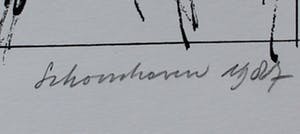 Schoonhoven 1987